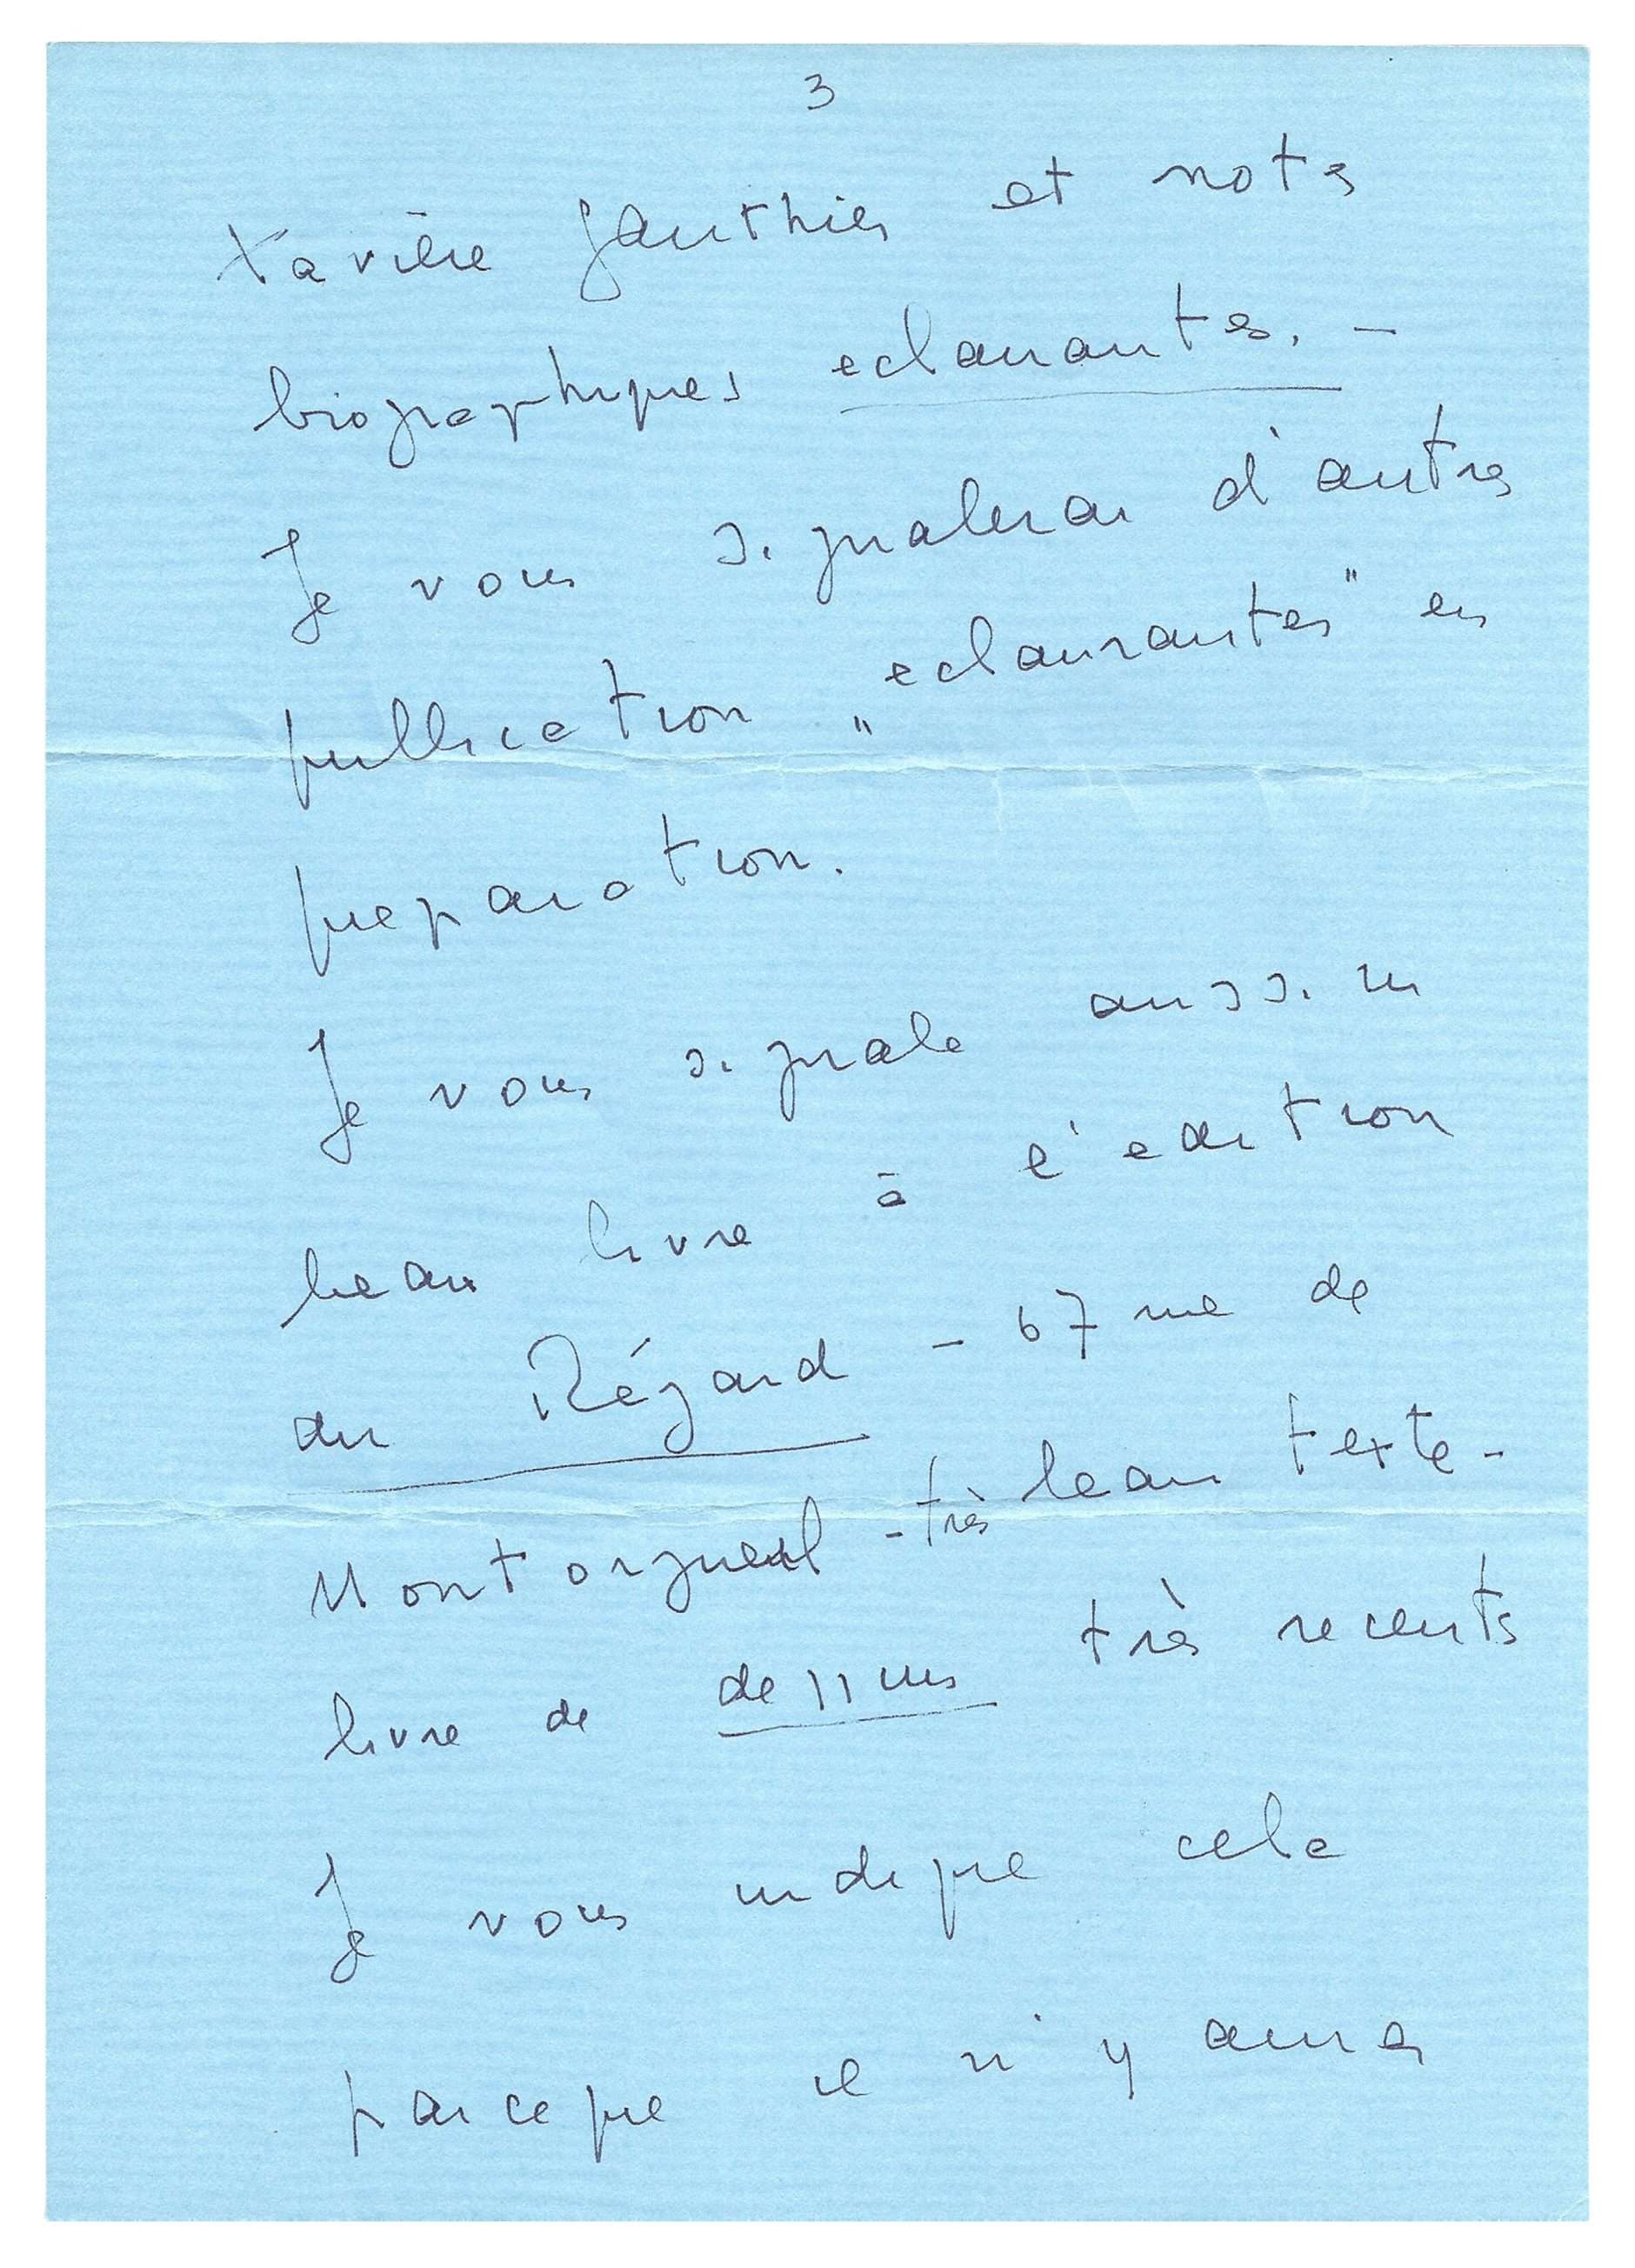 3
Xavière Gauthier et notes
biographiques eclairantes. -
Je vous signalerai d'autres
publication "eclairantes" en
preparation.
Je vous signale aussi un
beau livre à l'edition
du Régard - 67 rue de
Montorgueil - très beau texte -
livre de dessins très recents
Je vous indique cela
parceque il n'y aura